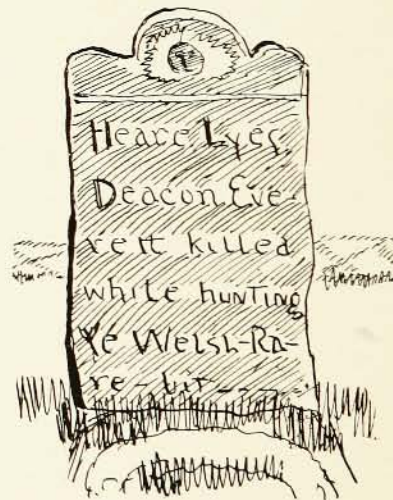 Heare Lyes
Deacon Eve-
rett killed
while hunting
Ye Welsh-Ra-
re-bit----